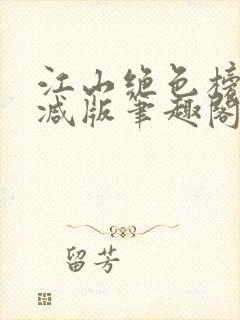 江山绝色榜
减版笔趣阁
留芳